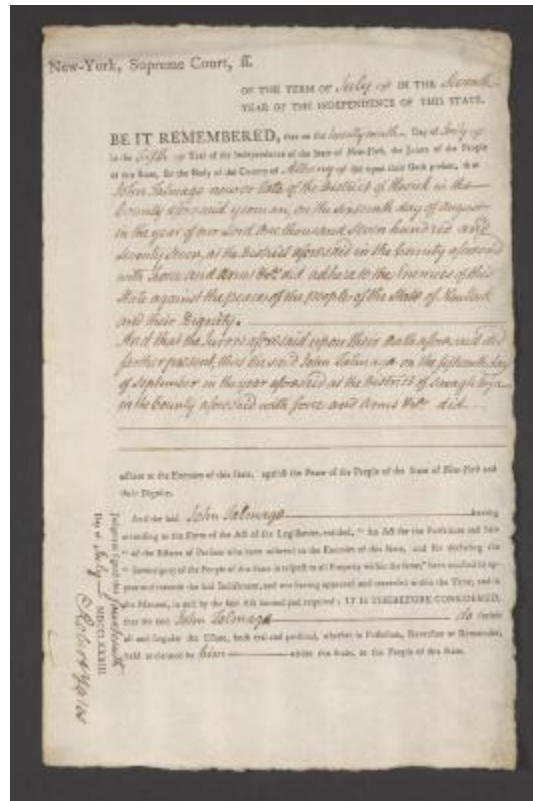 New-York, Supreme Court, ff.
OF THE TERM OF July IN THE Seventh
YEAR OF THE INDEPENDENCE OF THIS STATE.
BE IT REMEMBERED, that on the twenty ninth Day of July
in the fifth Year of the Independence of the State of New-York, the Jurors of the People
of this State, for the Body of the County of Albany did upon their Oath present, that
John Talmage now or late of the District of in the
County aforesaid yeoman, on the sixteenth day of August
in the year of our Lord One thousand Seven hundred and
Seventy Seven, at the District aforesaid in the County aforesaid
with force and Arms &c. did adhere to the Enemies of this
State against the peace of the people of the State of New York
and their Dignity.
And that the Jurors aforesaid upon their Oath aforesaid did
farther present, that the said John Talmage on the fifteenth day
of September in the year aforesaid at the District of
in the County aforesaid with force and Arms &c. did
adhere to the Enemies of this State, against the Peace of the People of the State of New-York and
their Dignity.
And the said John Talmage having
according to the Form of the Act of the Legislature, entitled, "An Act for the Forfeiture and Sale
"of the Estates of Persons who have adhered to the Enemies of this State, and for declaring the
"Sovereignty of the People of this State in respect to all Property within the same," been notified to ap-
pear and traverse the said Indictment, and not having appeared and traversed within the Time, and in
the Manner, in and by the said Act limited and required; IT IS THEREFORE CONSIDERED,
that the said John Talmage do forfeit
all and singular the Estate, both real and personal, whether in Possession, Reversion or Remainder,
held or claimed by him within this State, to the People of this State.
Judgment signed this
Day of July MDCCLXXXIII